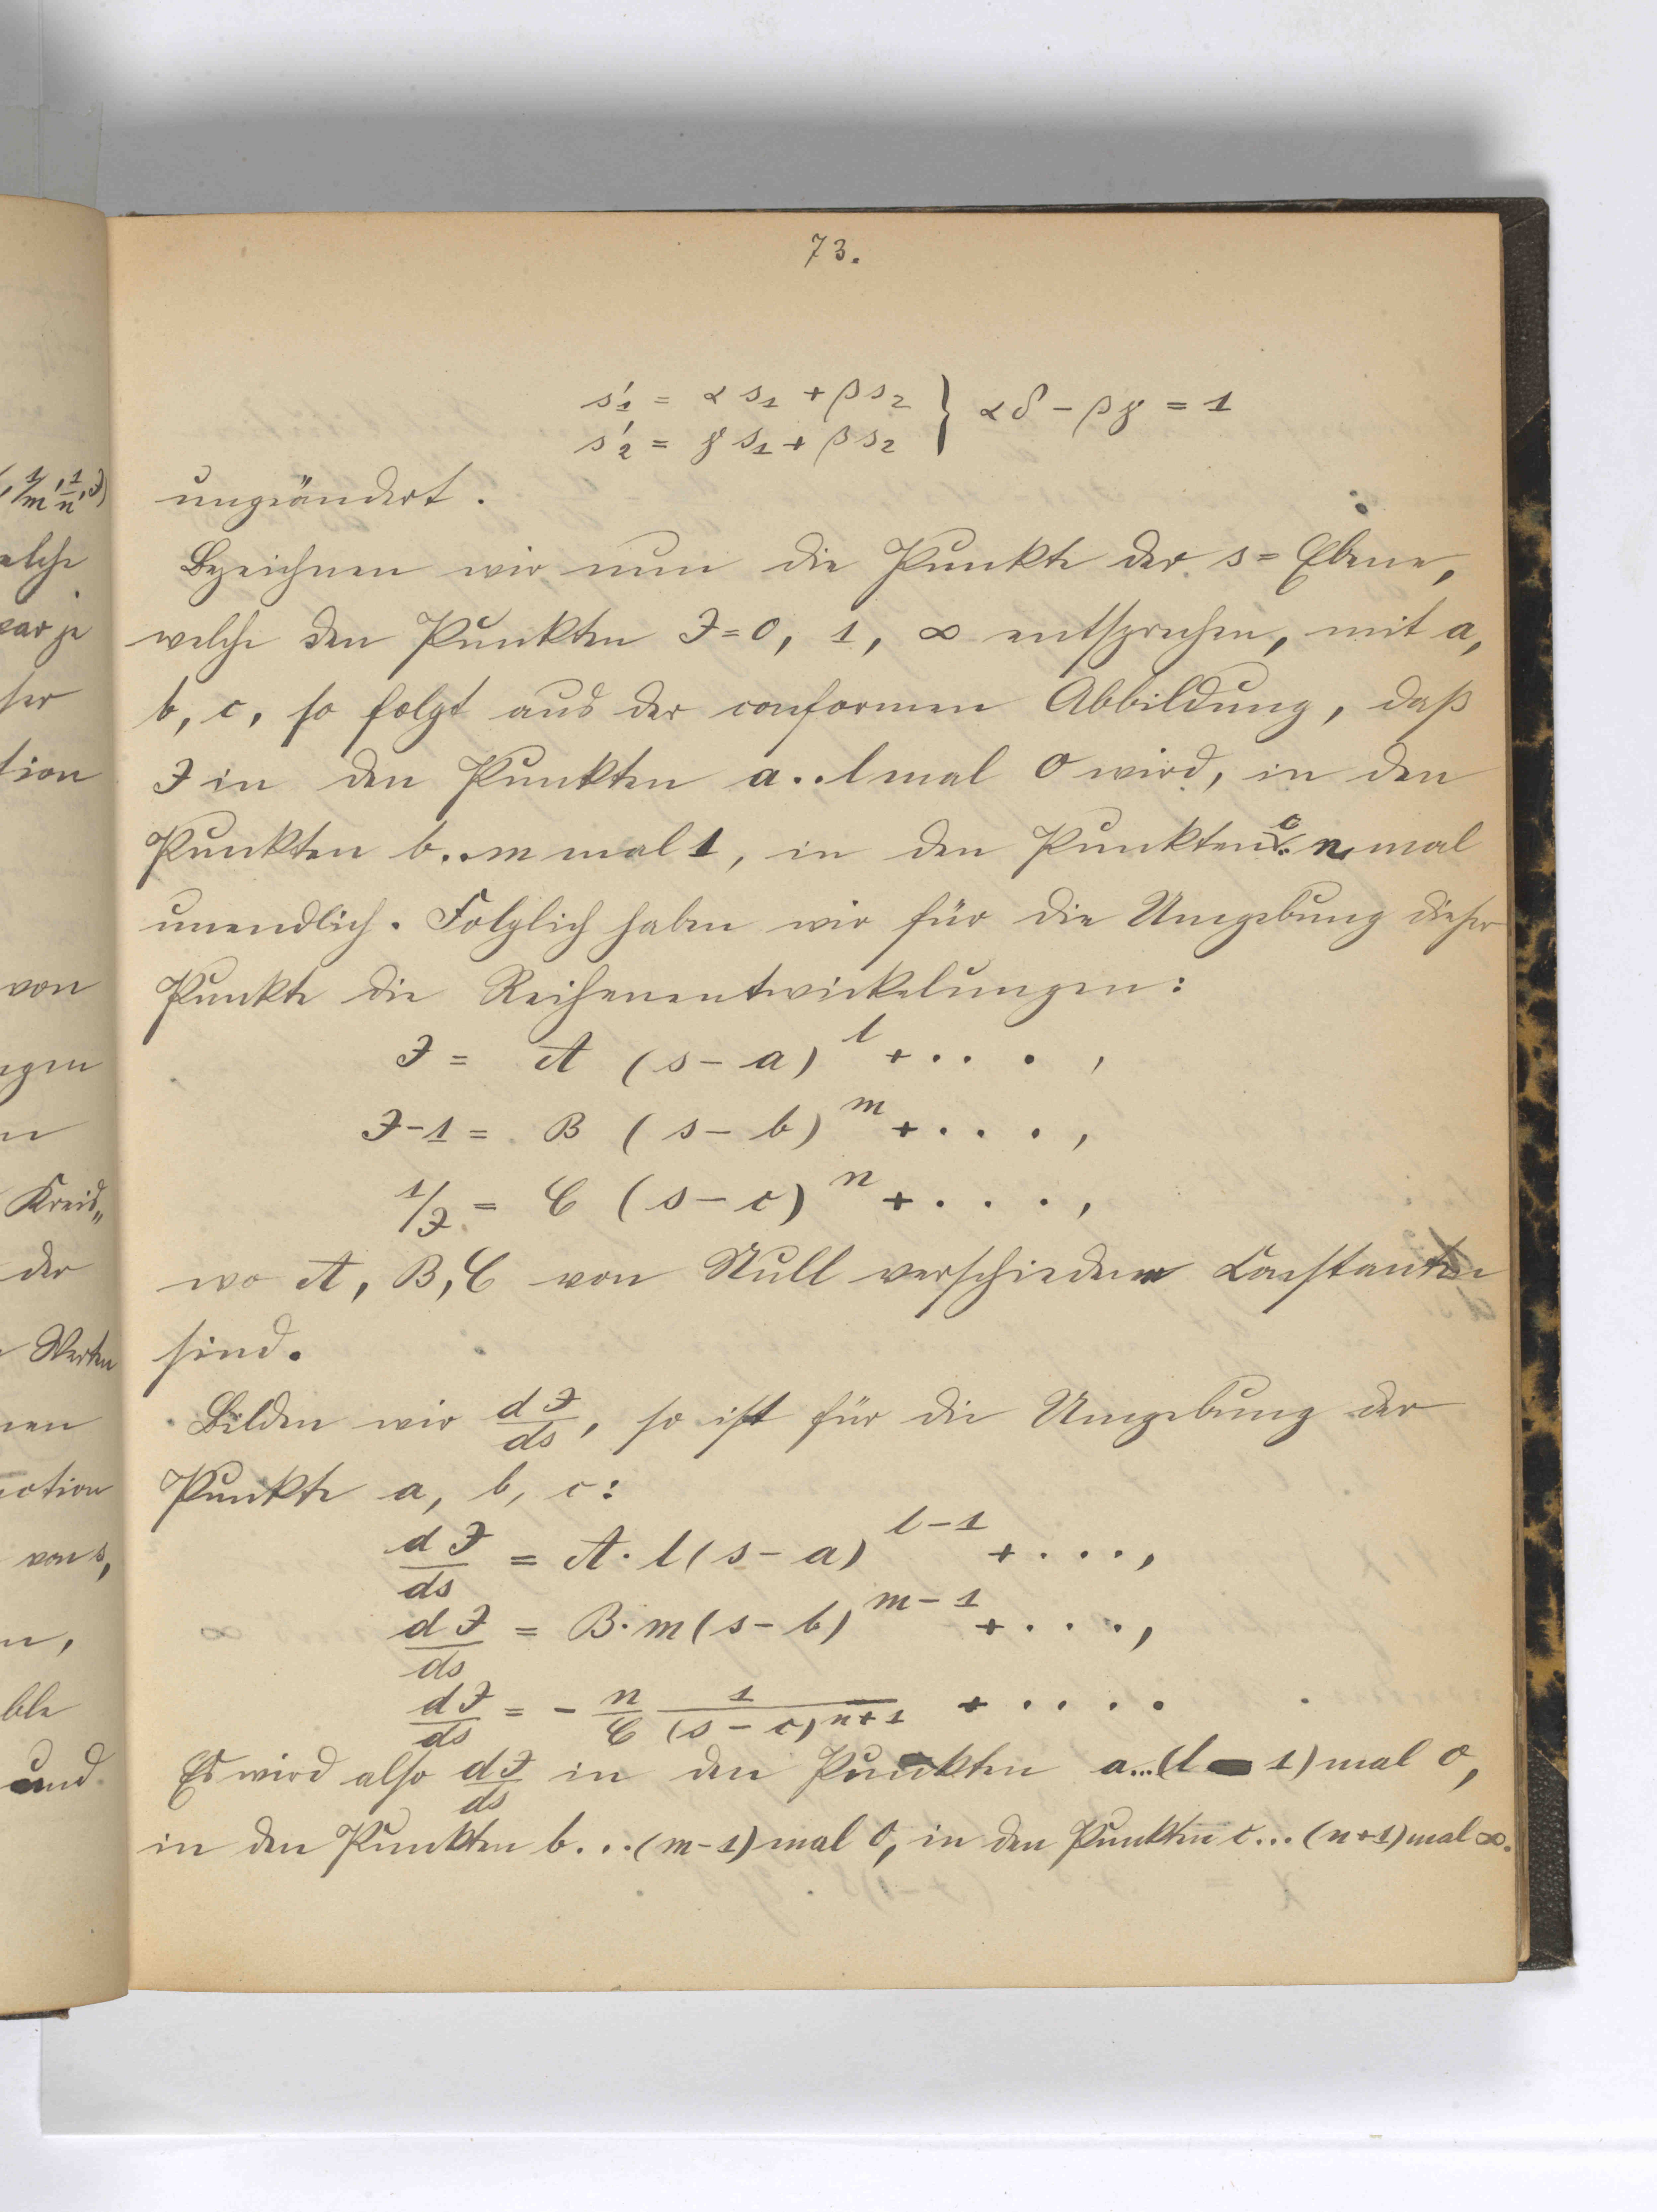 73.
s₁' = α s₁ + β s₂ } αδ - βγ = 1
s₂' = γ s₁ + β s₂
ungeändert.
Bezeichnen wir nun die Punkte der s=Ebene,
welche den Punkten J=0, 1, ∞ entsprechen, mit a,
b, c, so folgt aus der conformen Abbildung, daß
J in den Punkten a..l mal 0 wird, in den
Punkten b..m mal 1, in den Punkten c.. n mal
unendlich. Folglich haben wir für die Umgebung dieser
Punkte die Reihenentwickelungen:
J = A (s-a)^l + . . . ,
J-1 = B (s-b)^m + . . . ,
1/J = C (s-c)^n + . . . ,
wo A, B, C von Null verschiedene Constanten
sind.
Bilden wir dJ/ds, so ist für die Umgebung der
Punkte a, b, c:
dJ/ds = A·l(s-a)^{l-1} + . . . ,
dJ/ds = B·m(s-b)^{m-1} + . . . ,
dJ/ds = - n/C 1/(s-c)^{n+1} + . . . .
Es wird also dJ/ds in den Punkten a...(l-1) mal 0,
in den Punkten b...(m-1) mal 0, in den Punkten c...(n+1) mal ∞.
1/m, 1/n, J)
elche
par je
ser
tion
von
ngen
Kreis„
der
Werten
nen
nction
von s,
ble
und